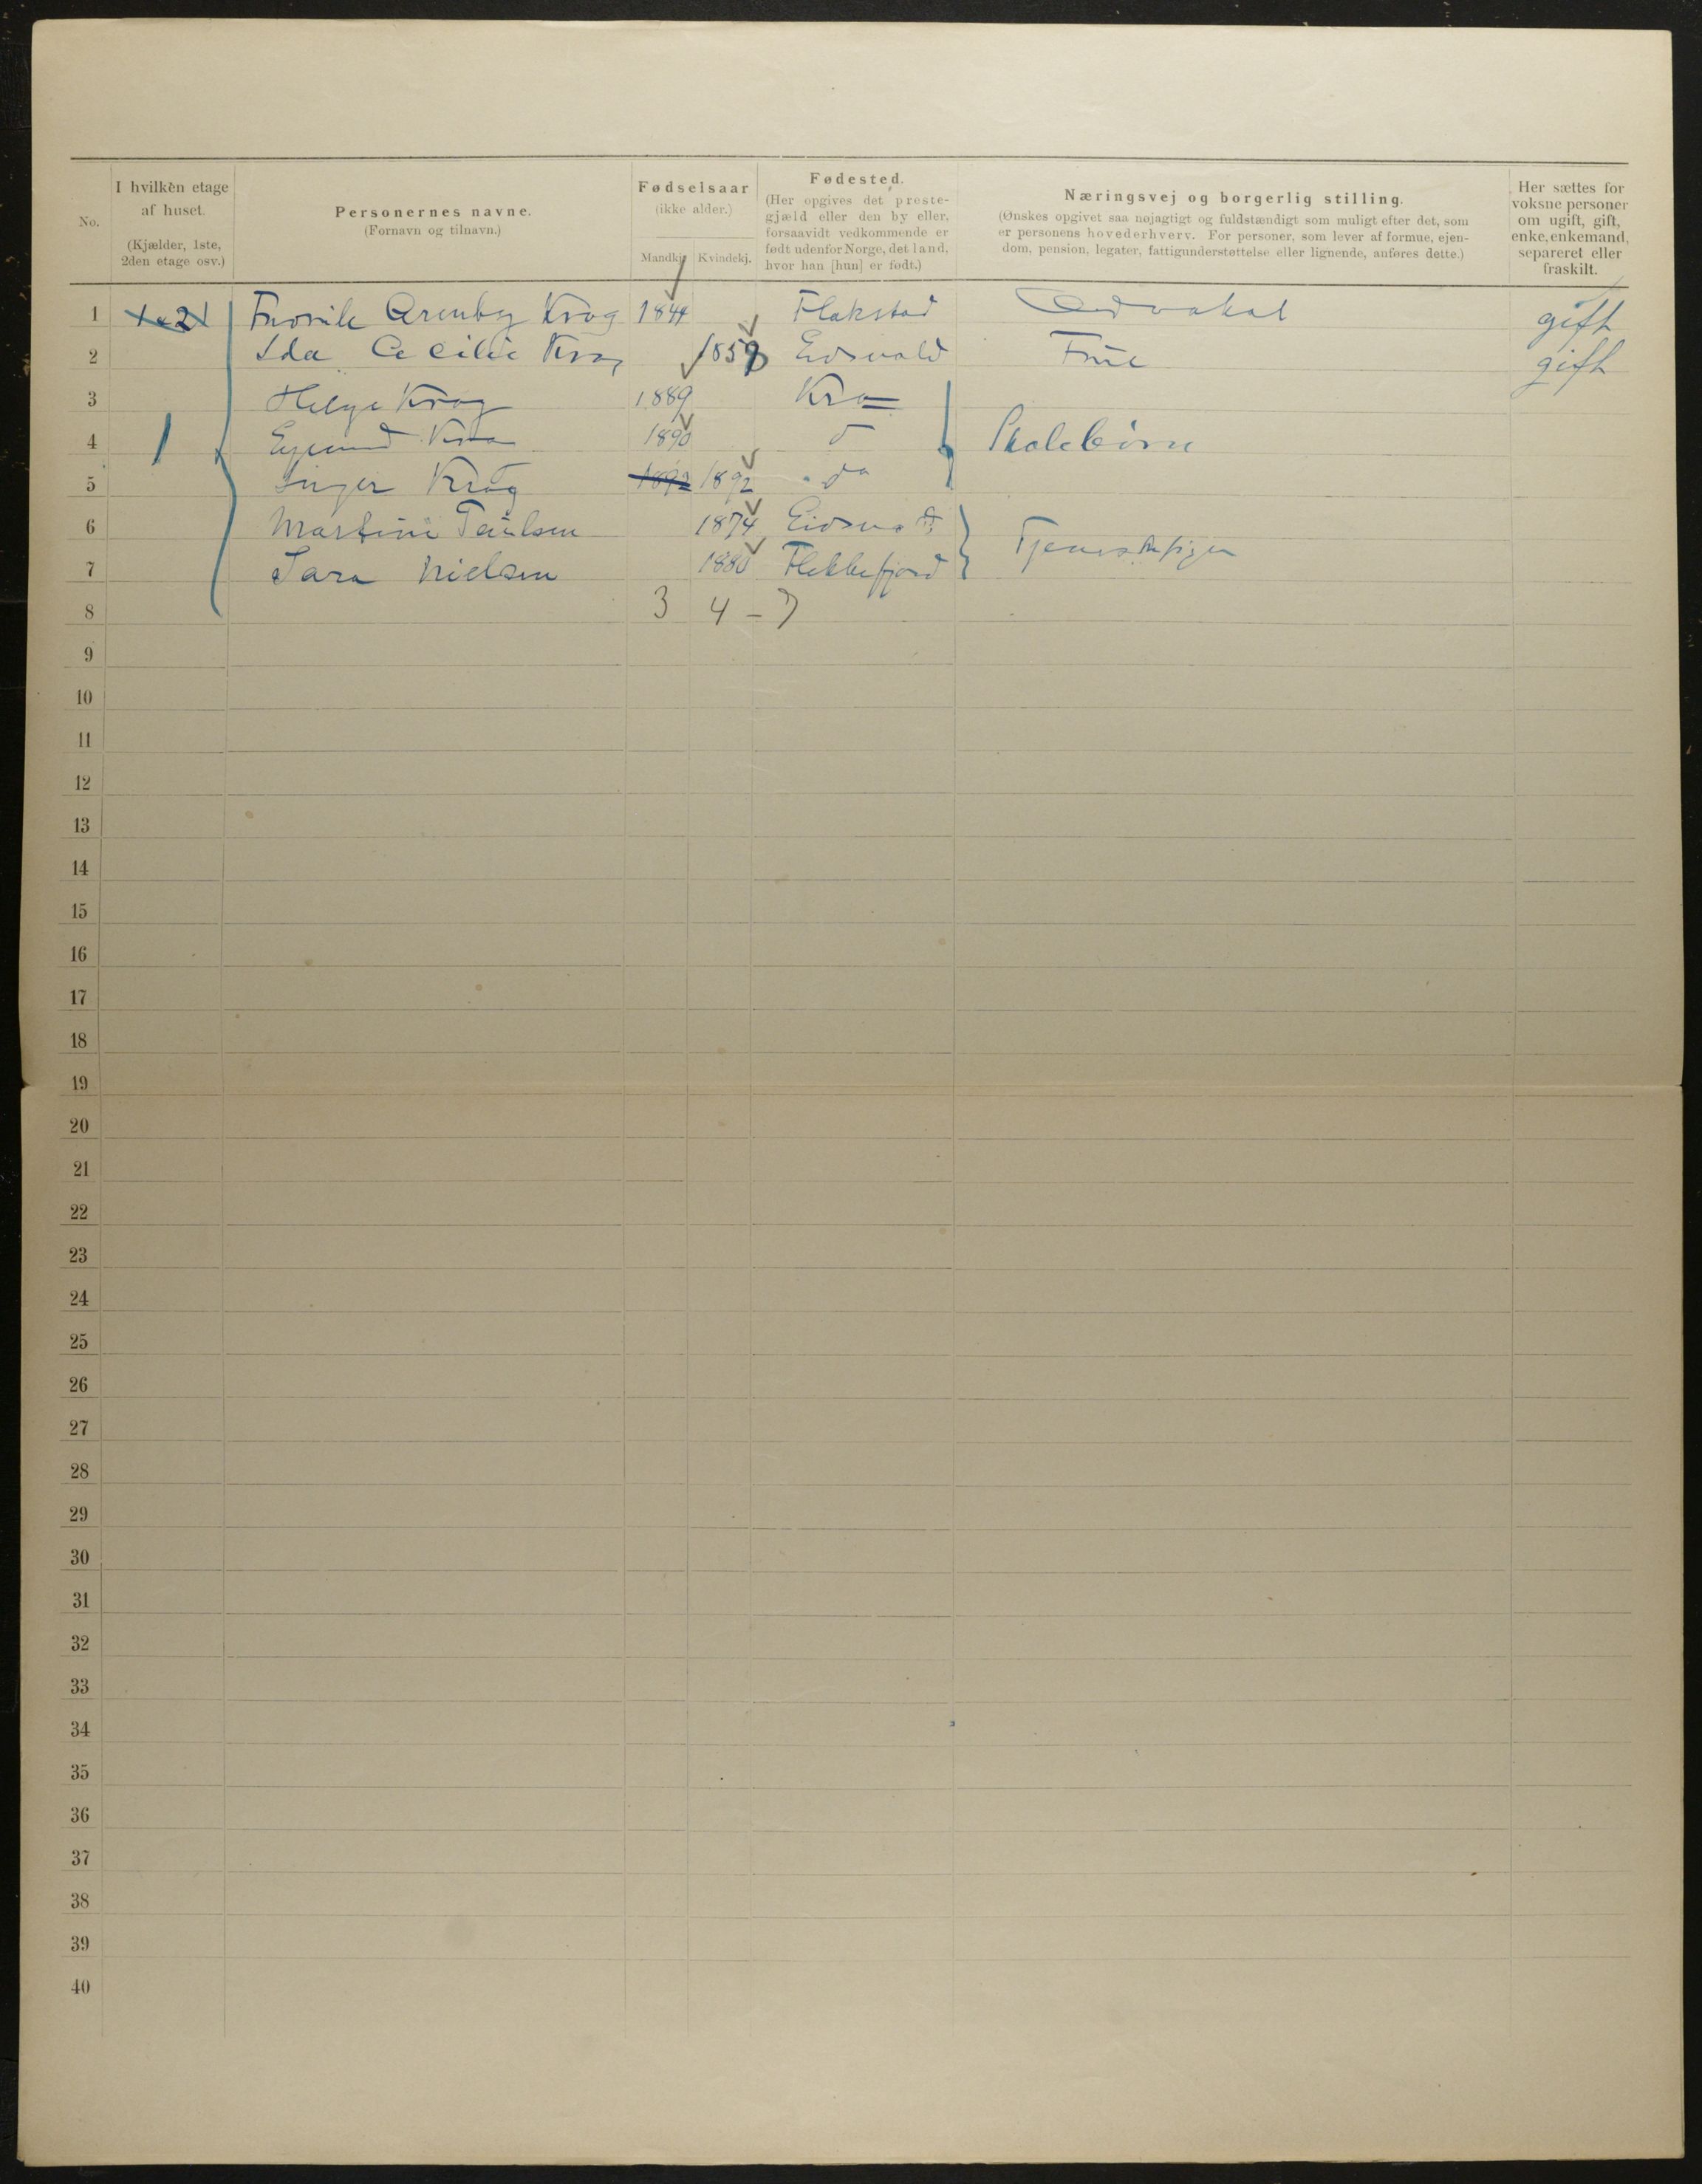 No.
I hvilken etage af huset.
(Kjælder, 1ste, 2den etage osv.)
Personernes navne.
(Fornavn og tilnavn.)
Fødselsaar
(ikke alder.)
Mandkj. Kvindekj.
Fødested.
(Her opgives det preste-
gjæld eller den by eller,
forsaavidt vedkommende er
født udenfor Norge, det land,
hvor han [hun] er født.)
Næringsvej og borgerlig stilling.
(Ønskes opgivet saa nøjagtigt og fuldstændigt som muligt efter det, som
er personens hovederhverv. For personer, som lever af formue, ejen-
dom, pension, legater, fattigunderstøttelse eller lignende, anføres dette.)
Her sættes for
voksne personer
om ugift, gift,
enke, enkemand,
separeret eller
fraskilt.
1 1 & 2 Krog 1844 Flakstad Advokat gift
2 Ida Cecilie Krog 1858 Eidsvold Frue gift
3 Helge Krog 1889 Kra
4 1 Krog 1890 d Skolebørn
5 Inger Krog 1892 1892 do
6 Martine Paulsen 1874 Eidsvold
7 Sara Nielsen 1880 Flekkefjord Tjenestepiger
8 3 4 - 7
9
10
11
12
13
14
15
16
17
18
19
20
21
22
23
24
25
26
27
28
29
30
31
32
33
34
35
36
37
38
39
40